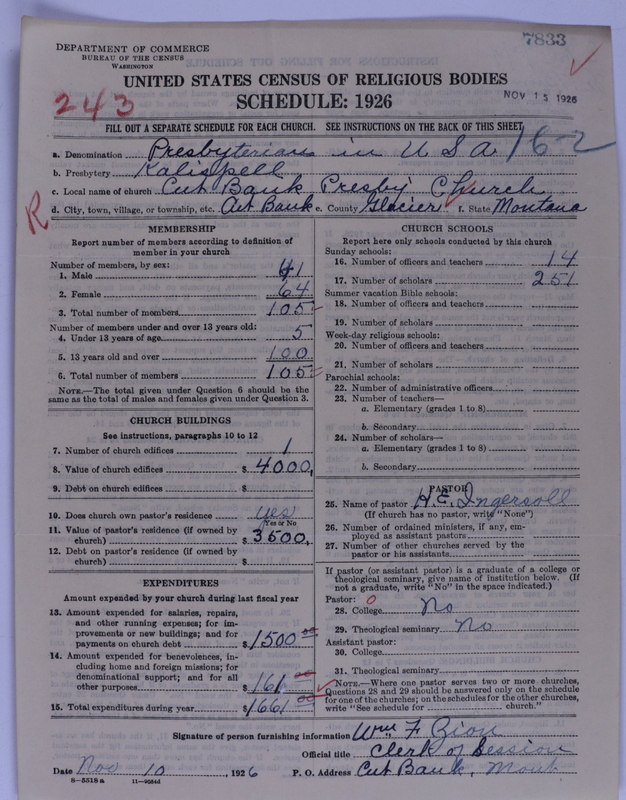 7833
DEPARTMENT OF COMMERCE
BUREAU OF THE CENSUS
WASHINGTON
UNITED STATES CENSUS OF RELIGIOUS BODIES
243
SCHEDULE: 1926
NOV 15 1926
FILL OUT A SEPARATE SCHEDULE FOR EACH CHURCH. SEE INSTRUCTIONS ON THE BACK OF THIS SHEET
162
a. Denomination Presbyterian in U S A
b. Presbytery Kalispell
c. Local name of church Cut Bank Presby Church
R
d. City, town, village, or township, etc. Cut Bank e. County Glacier f. State Montana
MEMBERSHIP
Report number of members according to definition of
member in your church
Number of members, by sex:
1. Male 41
2. Female 64
3. Total number of members 105
Number of members under and over 13 years old:
4. Under 13 years of age 5
5. 13 years old and over 100
6. Total number of members 105
NOTE.—The total given under Question 6 should be the
same as the total of males and females given under Question 3.
CHURCH BUILDINGS
See instructions, paragraphs 10 to 12
7. Number of church edifices 1
8. Value of church edifices $ 4000,
9. Debt on church edifices $
10. Does church own pastor's residence yes
Yes or No
11. Value of pastor's residence (if owned by
church) $ 3500,
12. Debt on pastor's residence (if owned by
church) $
EXPENDITURES
Amount expended by your church during last fiscal year
13. Amount expended for salaries, repairs,
and other running expenses; for im-
provements or new buildings; and for
payments on church debt $ 1500 00
14. Amount expended for benevolences, in-
cluding home and foreign missions; for
denominational support; and for all
other purposes $ 161 00
15. Total expenditures during year $ 1661 00
CHURCH SCHOOLS
Report here only schools conducted by this church
Sunday schools:
16. Number of officers and teachers 14
17. Number of scholars 251
Summer vacation Bible schools:
18. Number of officers and teachers
19. Number of scholars
Week-day religious schools:
20. Number of officers and teachers
21. Number of scholars
Parochial schools:
22. Number of administrative officers
23. Number of teachers—
a. Elementary (grades 1 to 8)
b. Secondary
24. Number of scholars—
a. Elementary (grades 1 to 8)
b. Secondary
PASTOR
25. Name of pastor H. E. Ingersoll
(If church has no pastor, write "None")
26. Number of ordained ministers, if any, em-
ployed as assistant pastors
27. Number of other churches served by the
pastor or his assistants
If pastor (or assistant pastor) is a graduate of a college or
theological seminary, give name of institution below. (If
not a graduate, write "No" in the space indicated.)
Pastor: 0
28. College No
29. Theological seminary No
Assistant pastor:
30. College
31. Theological seminary
NOTE.—Where one pastor serves two or more churches,
Questions 28 and 29 should be answered only on the schedule
for one of the churches; on the schedules for the other churches,
write "See schedule for church."
Signature of person furnishing information Wm F Zion
Official title Clerk of Session
Date Nov 10, 1926 P. O. Address Cut Bank, Mont
8-5518 a